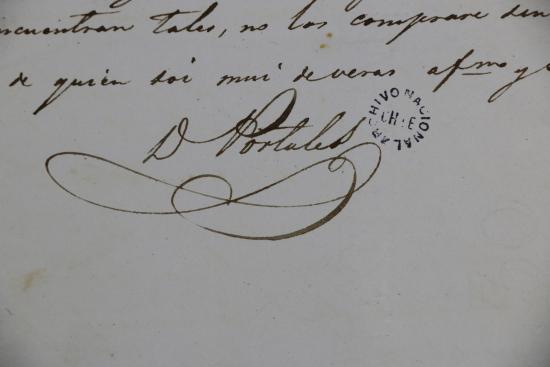 encuentran tales, no los comprare sin
de quién soi mui de veras afmo y
D Portales
ARCHIVO NACIONAL
CHILE